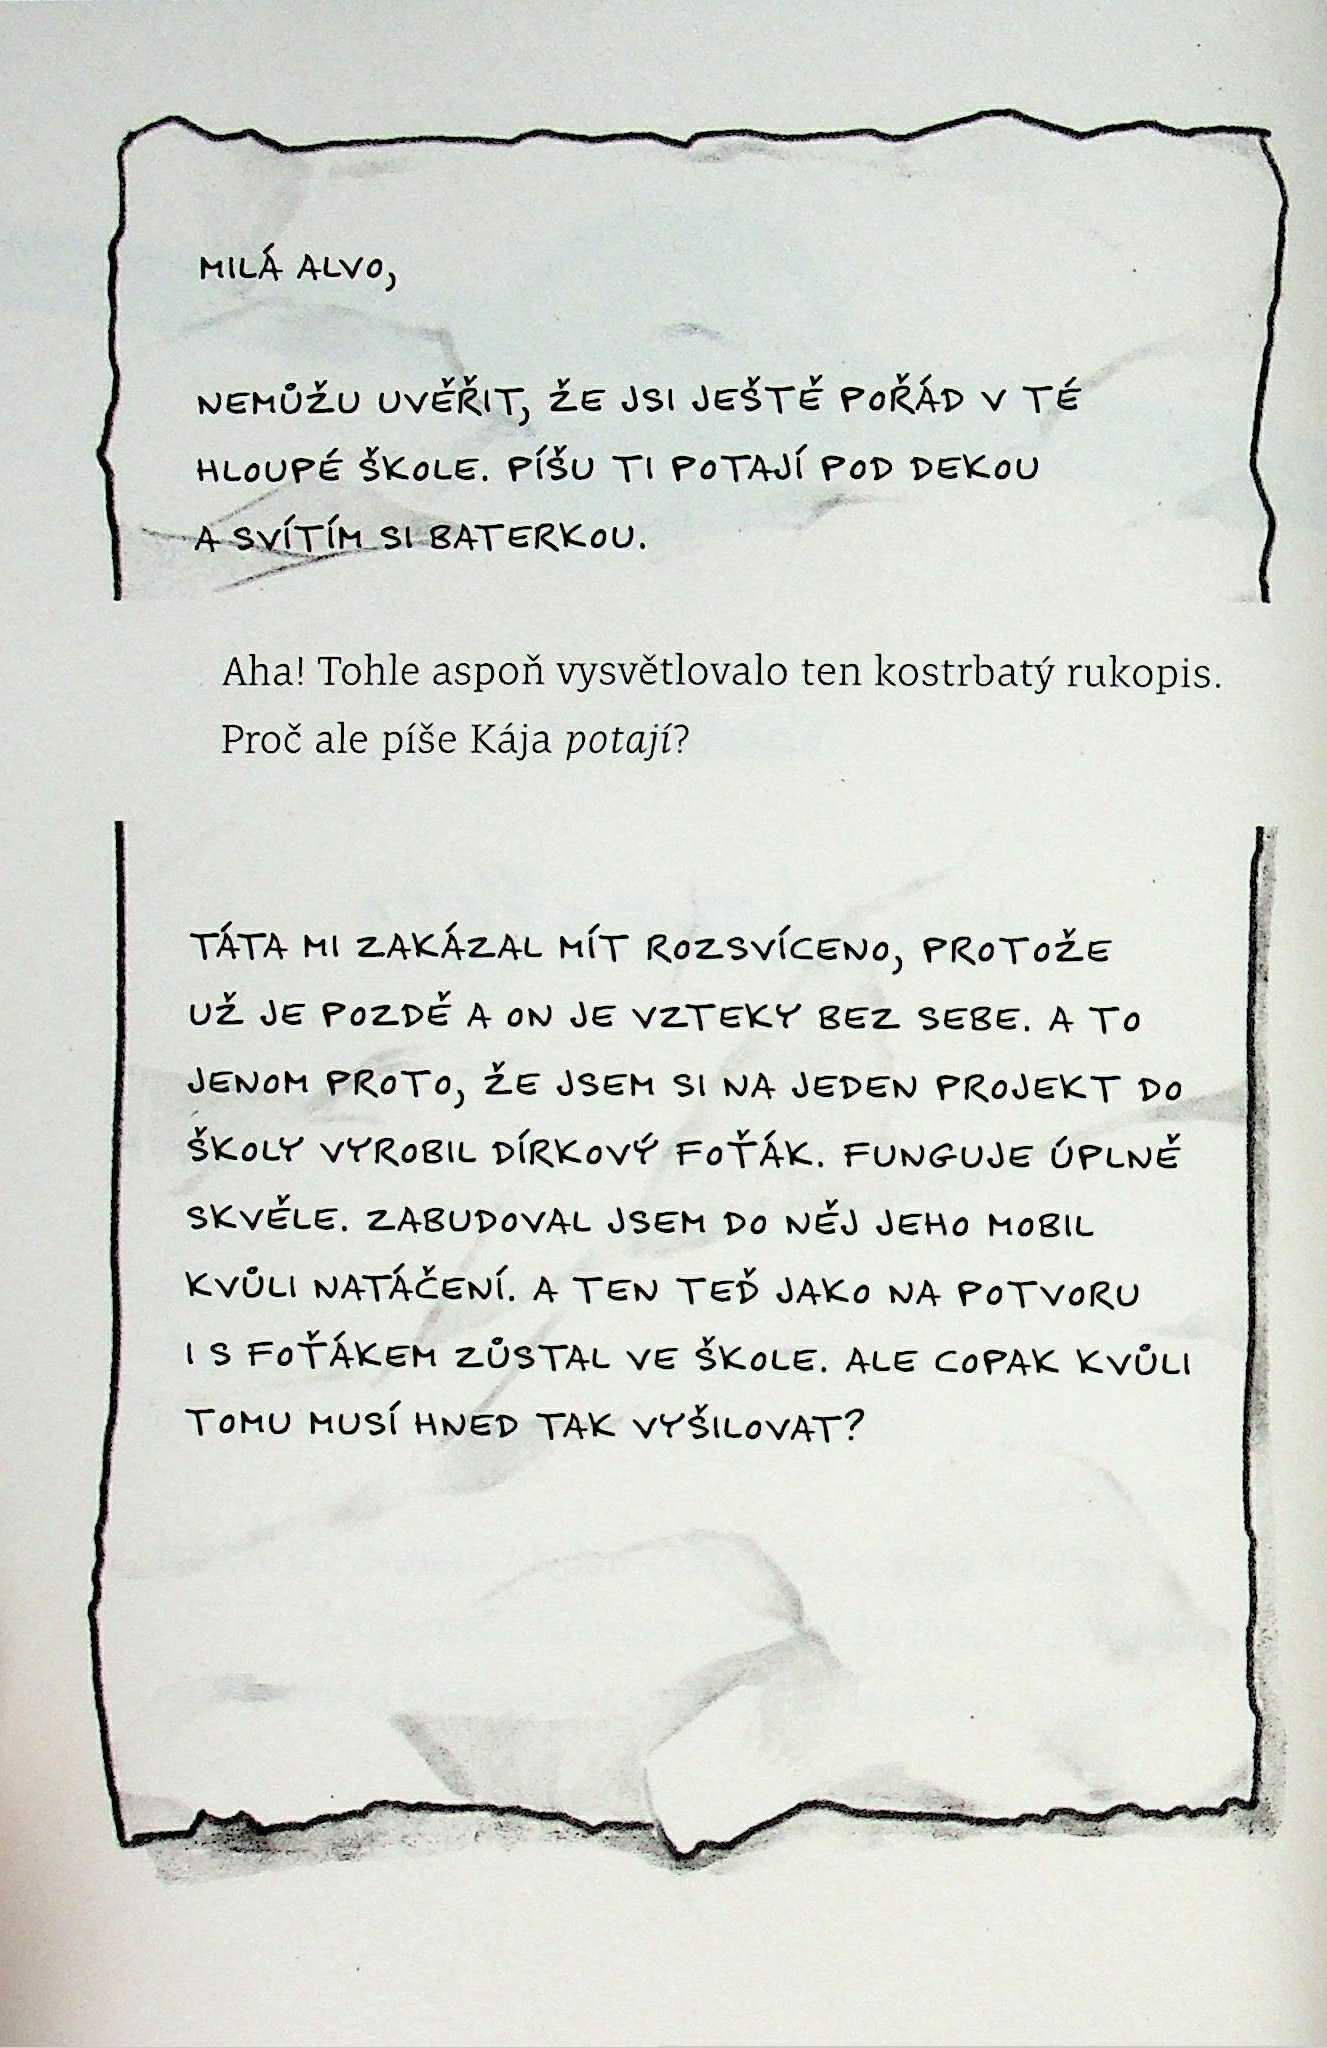 MILÁ ALVO,
NEMŮŽU UVĚŘIT, ŽE JSI JEŠTĚ POŘÁD V TÉ
HLOUPÉ ŠKOLE. PÍŠU TI POTAJÍ POD DEKOU
A SVÍTÍM SI BATERKOU.
Aha! Tohle aspoň vysvětlovalo ten kostrbatý rukopis.
Proč ale píše Kája potají?
TÁTA MI ZAKÁZAL MÍT ROZSVÍCENO, PROTOŽE
UŽ JE POZDĚ A ON JE VZTEKY BEZ SEBE. A TO
JENOM PROTO, ŽE JSEM SI NA JEDEN PROJEKT DO
ŠKOLY VYROBIL DÍRKOVÝ FOŤÁK. FUNGUJE ÚPLNĚ
SKVĚLE. ZABUDOVAL JSEM DO NĚJ JEHO MOBIL
KVŮLI NATÁČENÍ. A TEN TEĎ JAKO NA POTVORU
I S FOŤÁKEM ZŮSTAL VE ŠKOLE. ALE COPAK KVŮLI
TOMU MUSÍ HNED TAK VYŠILOVAT?